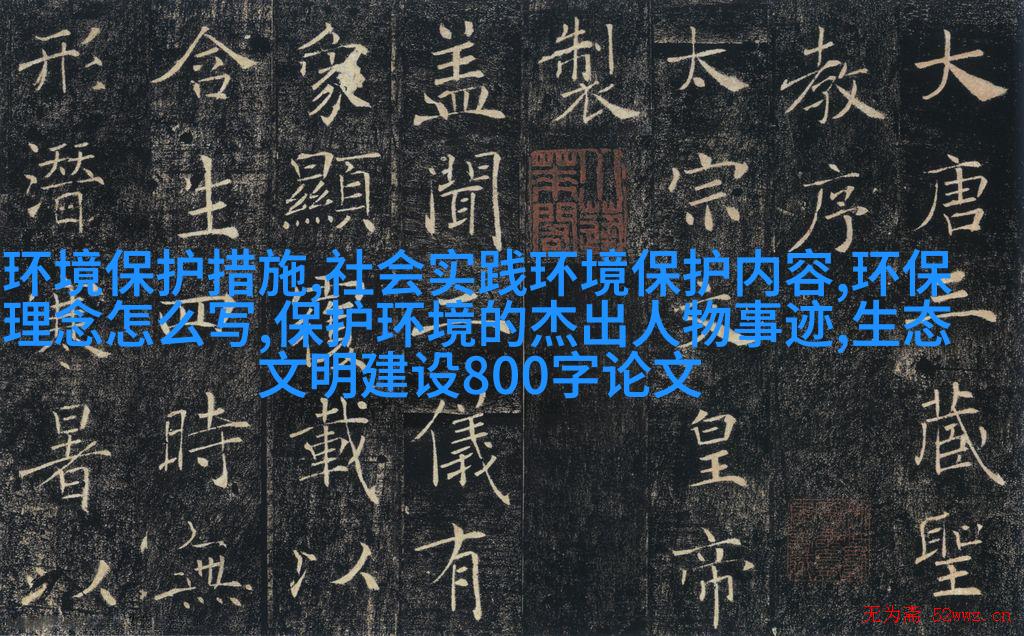 大唐三藏聖
教序
太宗文皇帝
製
盖聞二儀有
象顯覆載以
含生四時無
形潛寒暑以
环境保护措施,社会实践环境保护内容,环保
理念怎么写,保护环境的杰出人物事迹,生态
文明建设800字论文
无为斋 52wwz.cn